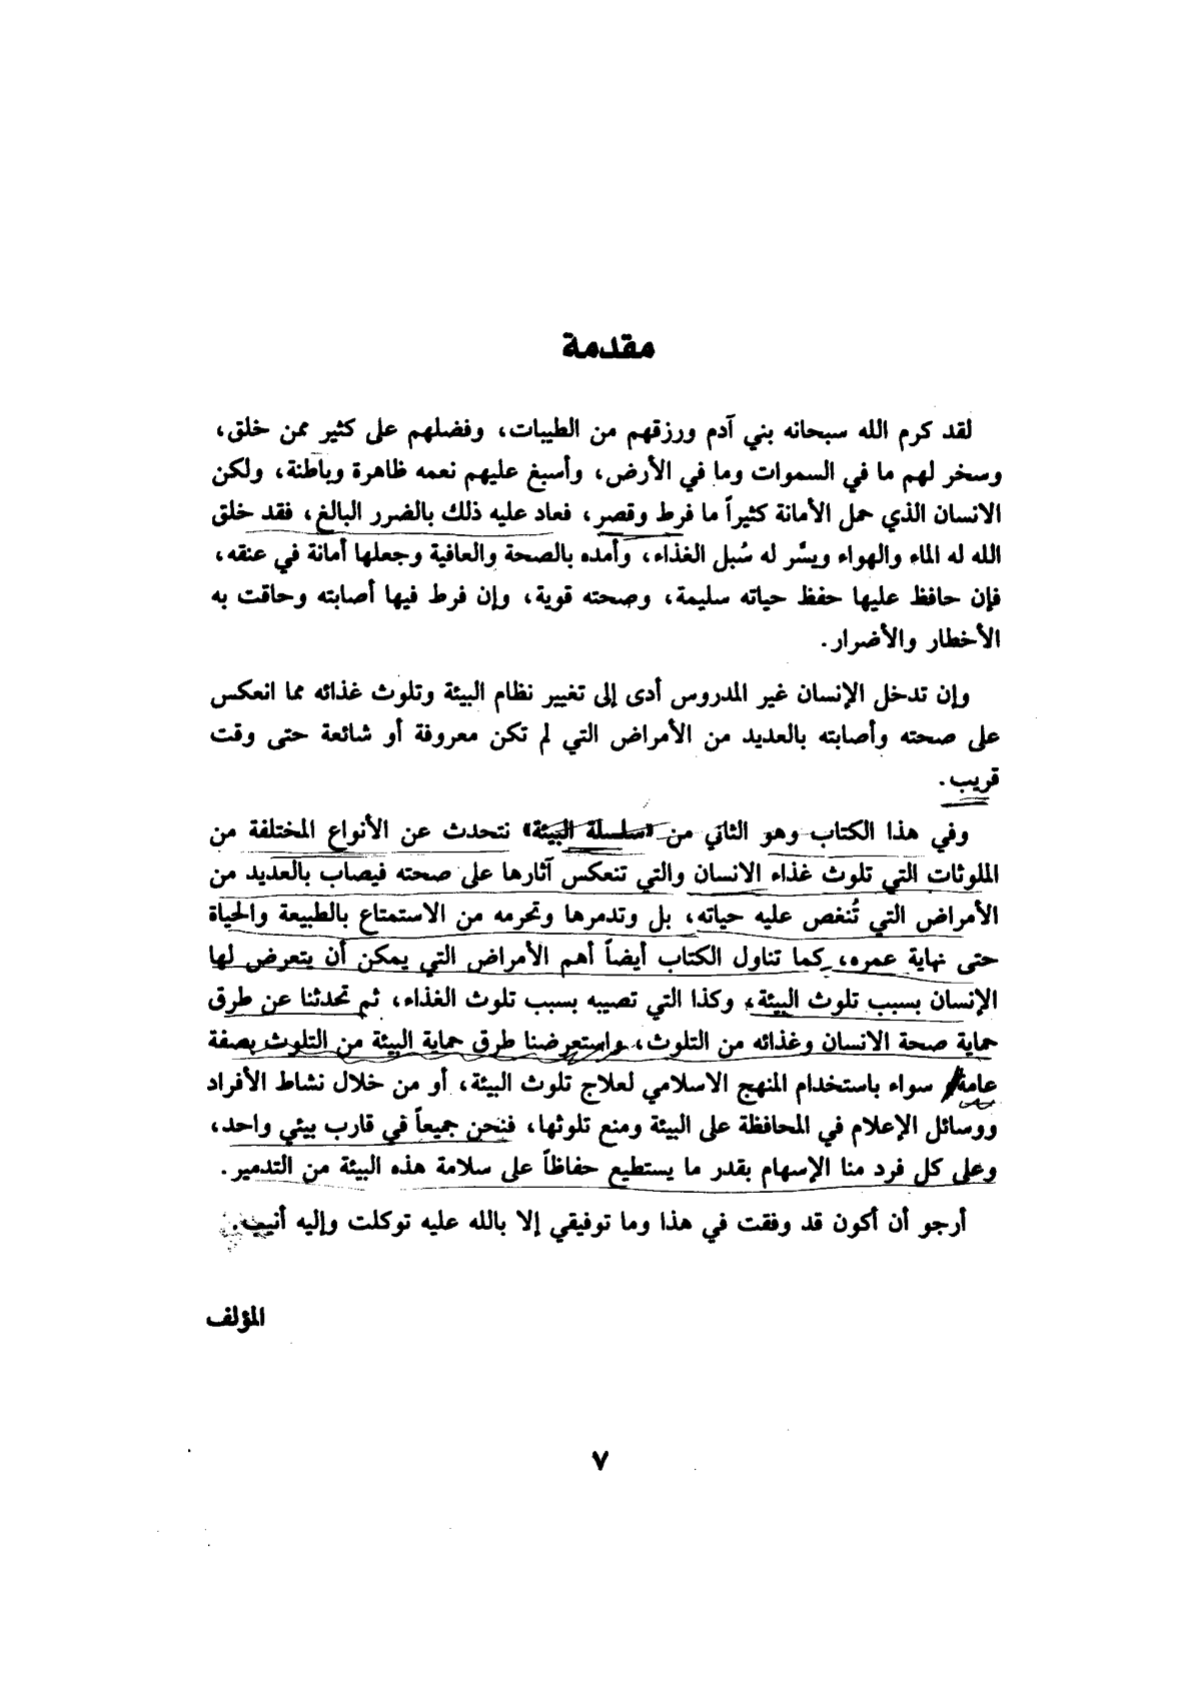 مقدمة
لقد كرم الله سبحانه بني آدم ورزقهم من الطيبات، وفضلهم على كثير ممن خلق،
وسخر لهم ما في السموات وما في الأرض، وأسبغ عليهم نعمه ظاهرة وباطنة، ولكن
الانسان الذي حمل الأمانة كثيراً ما فرط وقصر، فعاد عليه ذلك بالضرر البالغ، فقد خلق
الله له الماء والهواء ويسَّر له سُبل الغذاء، وأمده بالصحة والعافية وجعلها أمانة في عنقه،
فإن حافظ عليها حفظ حياته سليمة، وصحته قوية، وإن فرط فيها أصابته وحاقت به
الأخطار والأضرار.
وإن تدخل الإنسان غير المدروس أدى إلى تغيير نظام البيئة وتلوث غذائه مما انعكس
على صحته وأصابته بالعديد من الأمراض التي لم تكن معروفة أو شائعة حتى وقت
قريب.
وفي هذا الكتاب وهو الثاني من «سلسلة البيئة» نتحدث عن الأنواع المختلفة من
الملوثات التي تلوث غذاء الانسان والتي تنعكس آثارها على صحته فيصاب بالعديد من
الأمراض التي تُنغص عليه حياته، بل وتدمرها وتحرمه من الاستمتاع بالطبيعة والحياة
حتى نهاية عمره، كما تناول الكتاب أيضاً أهم الأمراض التي يمكن أن يتعرض لها
الإنسان بسبب تلوث البيئة، وكذا التي تصيبه بسبب تلوث الغذاء، ثم تحدثنا عن طرق
حماية صحة الانسان وغذائه من التلوث، واستعرضنا طرق حماية البيئة من التلوث بصفة
عامة سواء باستخدام المنهج الاسلامي لعلاج تلوث البيئة، أو من خلال نشاط الأفراد
ووسائل الإعلام في المحافظة على البيئة ومنع تلوثها، فنحن جميعاً في قارب بيئي واحد،
وعلى كل فرد منا الإسهام بقدر ما يستطيع حفاظاً على سلامة هذه البيئة من التدمير.
أرجو أن أكون قد وفقت في هذا وما توفيقي إلا بالله عليه توكلت وإليه أنيب.
المؤلف
٧